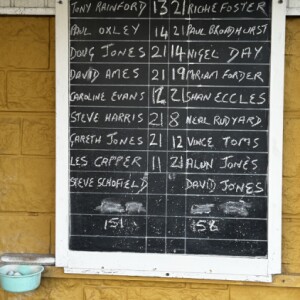 TONY RAINFORD 13 21 RICHIE FOSTER
PAUL OXLEY 14 21 PAUL BROADHURST
DOUG JONES 21 14 NIGEL DAY
DAVID AMES 21 19 MIRIAM FORDER
CAROLINE EVANS 12 21 SHAN ECCLES
STEVE HARRIS 21 8 NEAL RUDYARD
GARETH JONES 21 12 VINCE TOMS
LES CAPPER 11 21 ALUN JONES
STEVE SCHOFIELD DAVID JONES
151 158